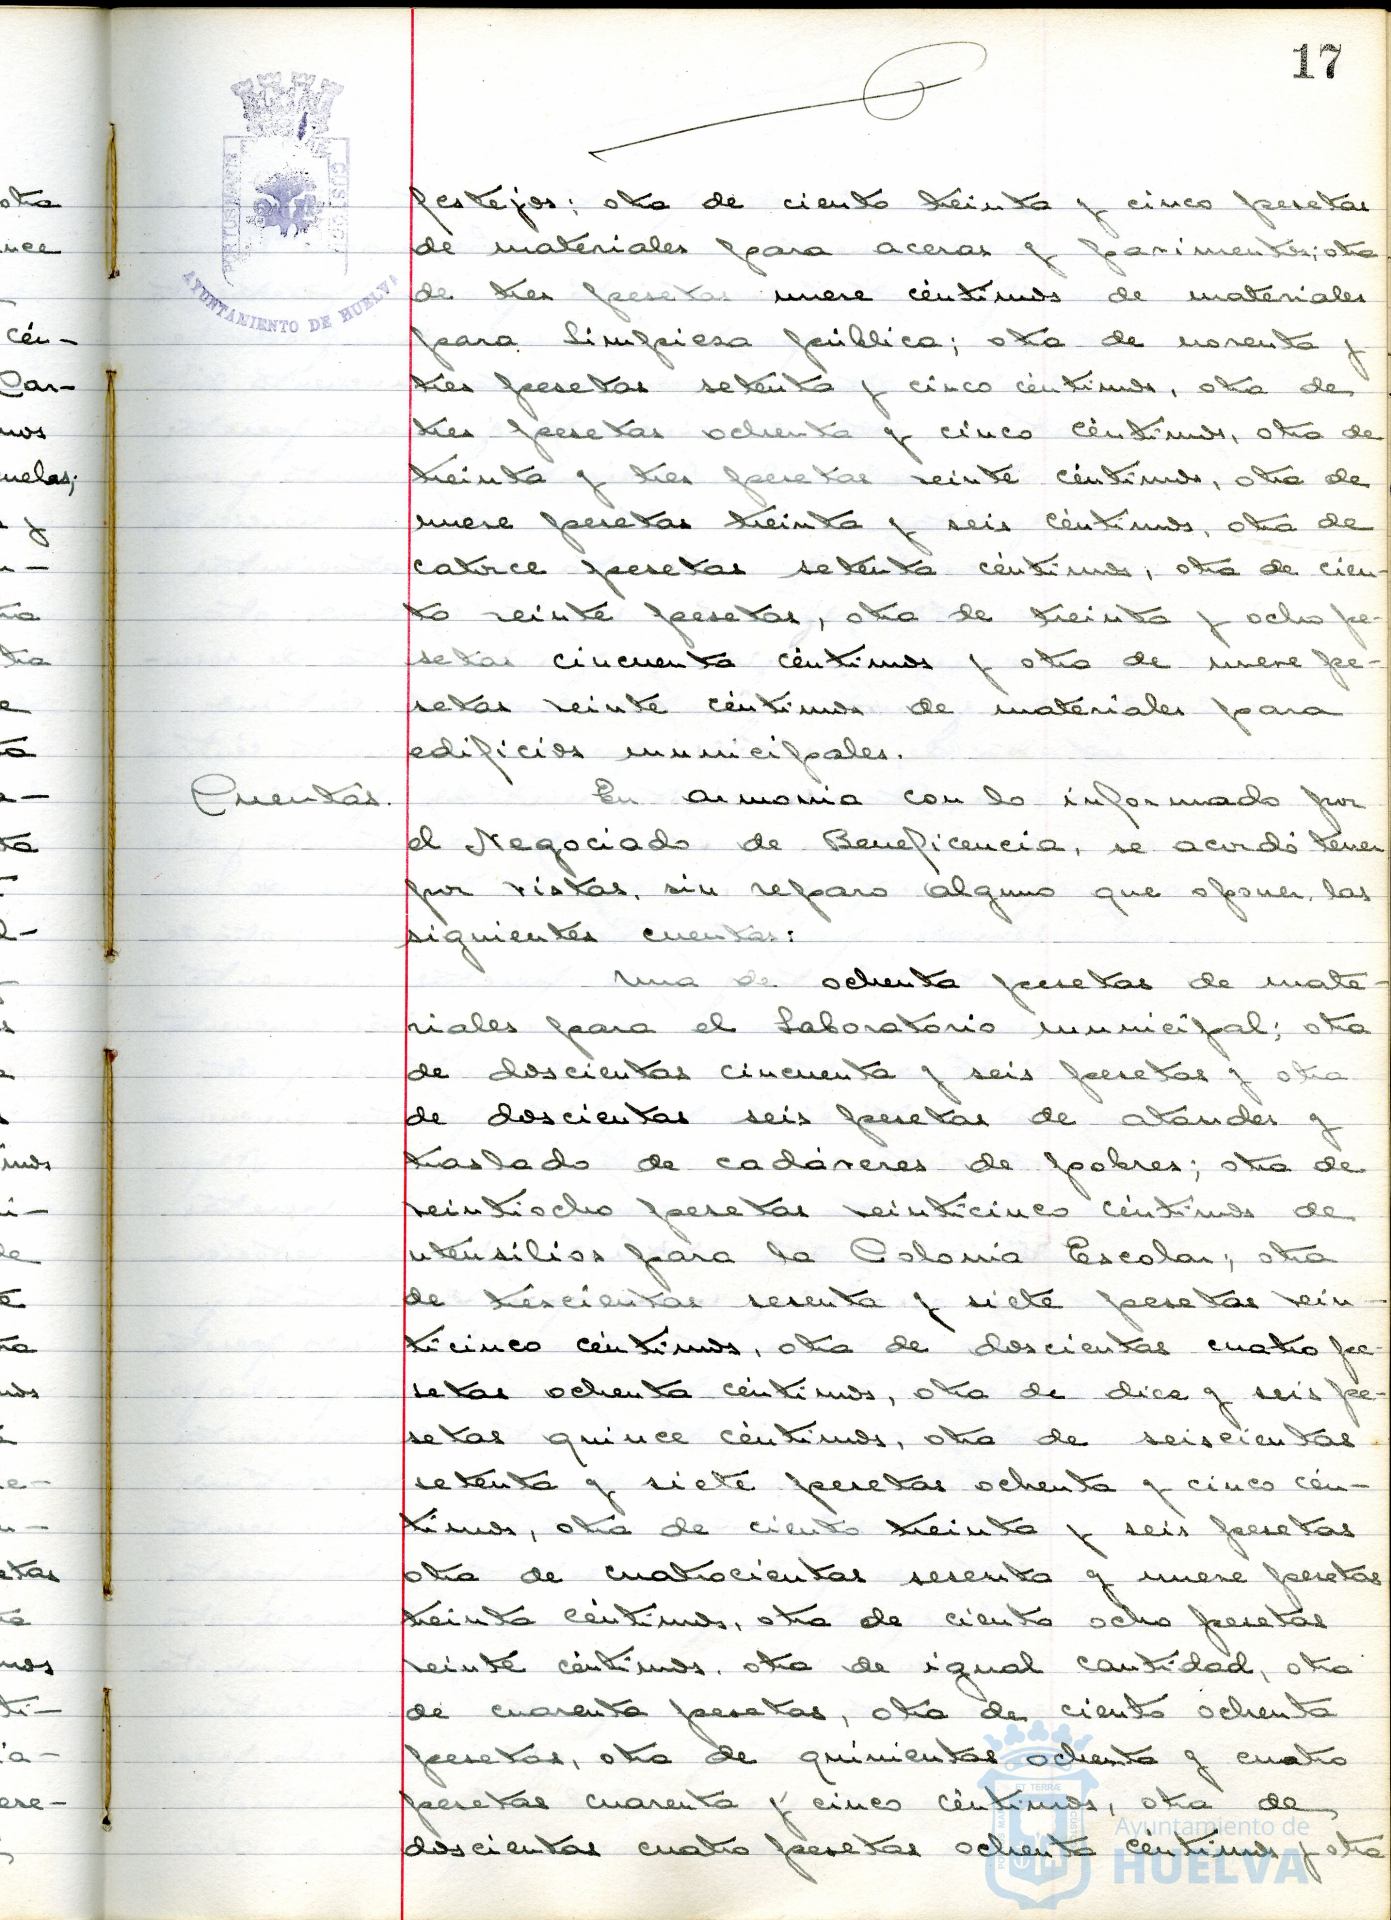 17
PORTUS MARIS
CUSTODIA
AYUNTAMIENTO DE HUELVA
festejos; otra de ciento treinta y cinco pesetas
de materiales para aceras y pavimentos; otra
de tres pesetas nueve céntimos de materiales
para limpieza pública; otra de noventa y
tres pesetas setenta y cinco céntimos, otra de
tres pesetas ochenta y cinco céntimos, otra de
treinta y tres pesetas veinte céntimos, otra de
nueve pesetas treinta y seis céntimos, otra de
catorce pesetas setenta céntimos, otra de cien-
to veinte pesetas, otra de treinta y ocho pe-
setas cincuenta céntimos y otra de nueve pe-
setas veinte céntimos de materiales para
edificios municipales.
Cuentas. En armonia con lo informado por
el Negociado de Beneficencia, se acordó tener
por vistas, sin reparo alguno que oponer, las
siguientes cuentas:
Una de ochenta pesetas de mate-
riales para el Laboratorio municipal; otra
de doscientas cincuenta y seis pesetas y otra
de doscientas seis pesetas de ataudes y
traslado de cadáveres de pobres; otra de
veintiocho pesetas veinticinco céntimos de
utensilios para la Colonia Escolar; otra
de trescientas sesenta y siete pesetas vein-
ticinco céntimos, otra de doscientas cuatro pe-
setas ochenta céntimos, otra de diez y seis pe-
setas quince céntimos, otra de seiscientas
setenta y siete pesetas ochenta y cinco cén-
timos, otra de ciento treinta y seis pesetas
otra de cuatrocientas sesenta y nueve pesetas
treinta céntimos, otra de ciento ocho pesetas
veinte céntimos, otra de igual cantidad, otra
de cuarenta pesetas, otra de ciento ochenta
pesetas, otra de quinientas ochenta y cuatro
pesetas cuarenta y cinco céntimos, otra de
doscientas cuatro pesetas ochenta céntimos y otra
Ayuntamiento de
HUELVA